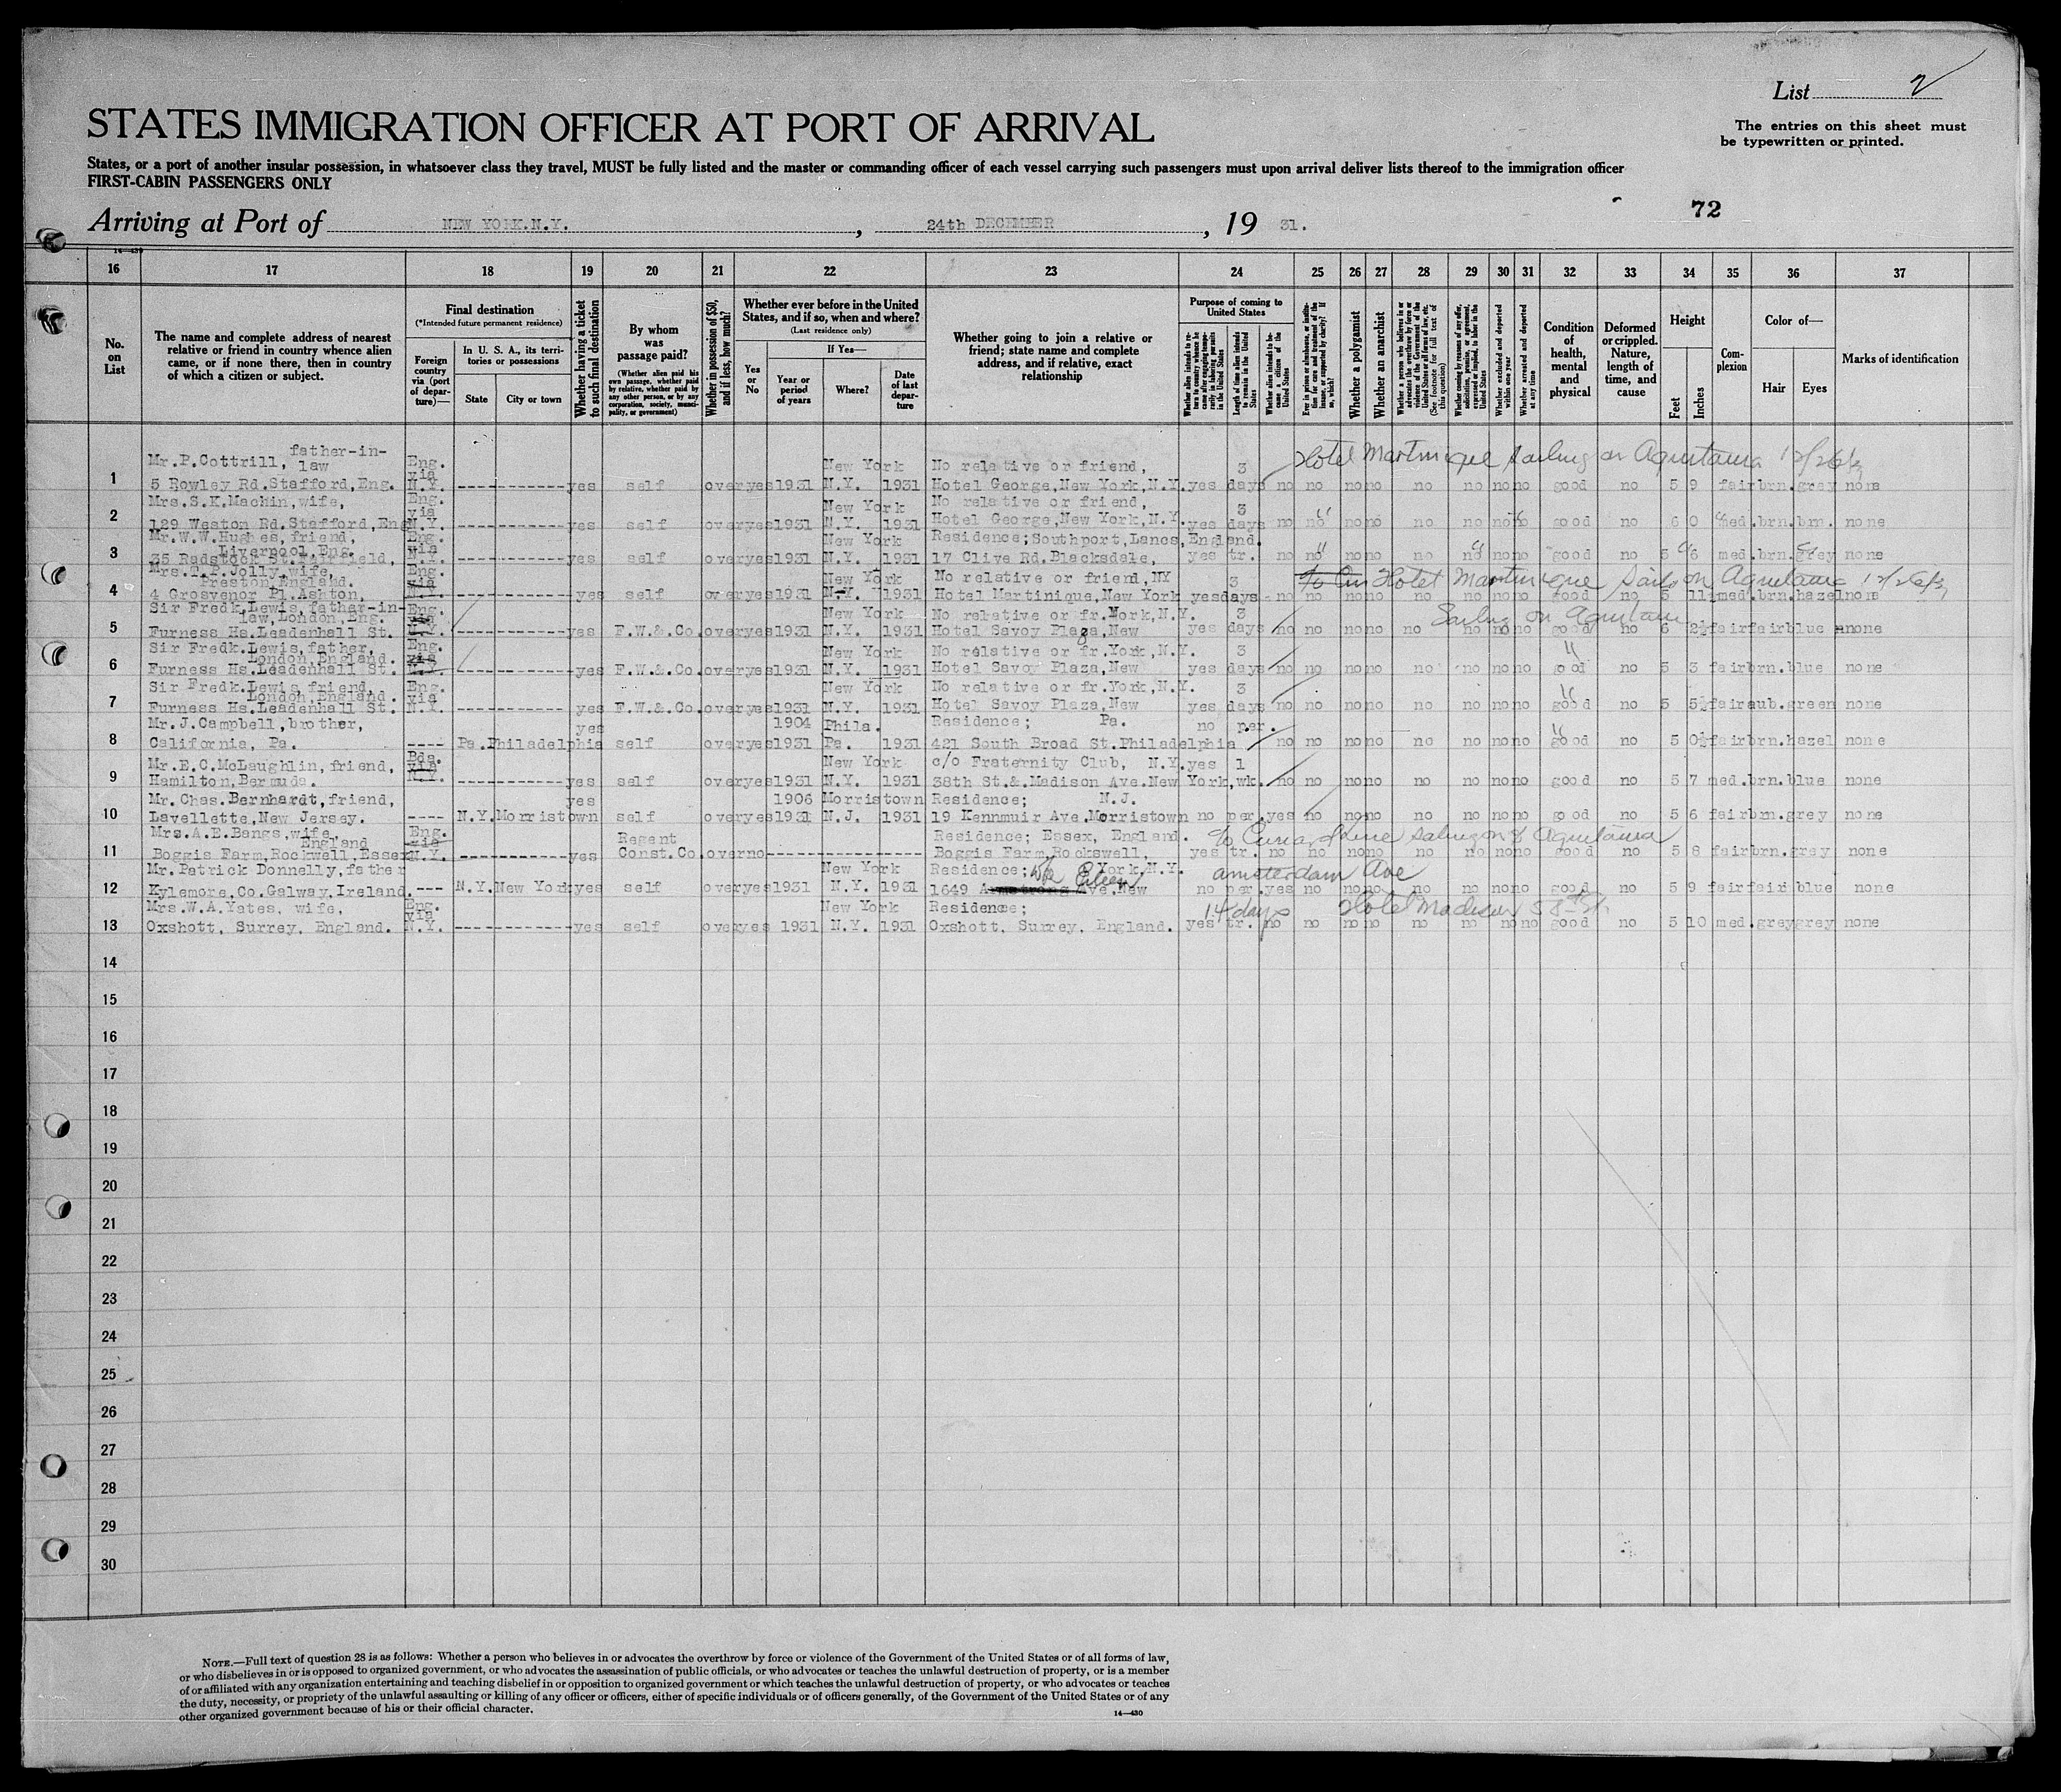 List 2
STATES IMMIGRATION OFFICER AT PORT OF ARRIVAL
The entries on this sheet must
be typewritten or printed.
States, or a port of another insular possession, in whatsoever class they travel, MUST be fully listed and the master or commanding officer of each vessel carrying such passengers must upon arrival deliver lists thereof to the immigration officer
FIRST-CABIN PASSENGERS ONLY
72
Arriving at Port of NEW YORK.N.Y. , 24th DECEMBER , 19 31.
16 17 18 19 20 21 22 23 24 25 26 27 28 29 30 31 32 33 34 35 36 37
No. on List
The name and complete address of nearest relative or friend in country whence alien came, or if none there, then in country of which a citizen or subject.
Final destination
(*Intended future permanent residence)
Foreign country via (port of departure)—
In U. S. A., its territories or possessions
State
City or town
Whether having a ticket to such final destination
By whom was passage paid?
(Whether alien paid his own passage, whether paid by relative, whether paid by any other person, or by any corporation, society, municipality, or government)
Whether in possession of $50, and if less, how much?
Whether ever before in the United States, and if so, when and where?
(Last residence only)
Yes or No
If Yes—
Year or period of years
Where?
Date of last departure
Whether going to join a relative or friend; state name and complete address, and if relative, exact relationship
Purpose of coming to United States
Whether alien intends to return to country whence he came after engaging temporarily in laboring pursuits in the United States
Length of time alien intends to remain in the United States
Whether alien intends to become a citizen of the United States
Ever in prison or almshouse, or institution for care and treatment of the insane, or supported by charity? If so, which?
Whether a polygamist
Whether an anarchist
Whether a person who believes in or advocates the overthrow by force or violence of the Government of the United States or all forms of law, etc. (See footnote for full text of this question)
Whether coming by reason of any offer, solicitation, promise, or agreement, expressed or implied, to labor in the United States
Whether excluded and deported within one year
Whether arrested and deported at any time
Condition of health, mental and physical
Deformed or crippled. Nature, length of time, and cause
Height
Feet
Inches
Complexion
Color of—
Hair
Eyes
Marks of identification
Hotel Martinique sailing on Aquitania 12/26/31
1 Mr.P.Cottrill, father-in-law Eng. via New York No relative or friend, 3
5 Rowley Rd.Stafford,Eng. N.Y. ---------- yes self over yes 1931 N.Y. 1931 Hotel George,New York,N.Y. yes days no no no no no no no no good no 5 9 fair brn. grey none
2 Mrs.S.K.Machin,wife, Eng. via New York No relative or friend, 3
129 Weston Rd.Stafford,Eng N.Y. ---------- yes self over yes 1931 N.Y. 1931 Hotel George,New York,N.Y. yes days no no no no no no no no good no 6 0 med. brn. brn. none
3 Mr.W.W.Hughes,friend, Eng. New York Residence;Southport,Lancs,England.
Liverpool,Eng. via
35 Radstock St. N.Y. ---------- yes self over yes 1931 N.Y. 1931 17 Clive Rd.Blacksdale, yes tr. no no no no no no no no good no 5 6 med. brn. grey none
Hotel Martinique sail on Aquitania 12/26/31
4 Mrs.T.P.Jolly,wife, Eng. New York No relative or friend,NY 3
Preston,England. via
4 Grosvenor Pl.Ashton, N.Y. ---------- yes self over yes 1931 N.Y. 1931 Hotel Martinique,New York yes days no no no no no no no no good no 5 11½ med. brn. hazel none
Sailing on Aquitania
5 Sir Fredk.Lewis,father-in- Eng. New York No relative or fr.York,N.Y. 3
law,London,Eng. via
Furness Hs.Leadenhall St. N.Y. ---------- yes F.W.&.Co. over yes 1931 N.Y. 1931 Hotel Savoy Plaza,New yes days no no no no no no no no good no 6 2½ fair fair blue none
6 Sir Fredk.Lewis,father, Eng. New York No relative or fr.York,N.Y. 3
London,England. via
Furness Hs.Leadenhall St. N.Y. ---------- yes F.W.&.Co. over yes 1931 N.Y. 1931 Hotel Savoy Plaza,New yes days no no no no no no no no good no 5 3 fair brn. blue none
7 Sir Fredk.Lewis,friend, Eng. New York No relative or fr.York,N.Y. 3
London,England. via
Furness Hs.Leadenhall St. N.Y. ---------- yes F.W.&.Co. over yes 1931 N.Y. 1931 Hotel Savoy Plaza,New yes days no no no no no no no no good no 5 5½ fair aub. green none
8 Mr.J.Campbell,brother, yes 1904 Phila. Residence; Pa. no per.
California, Pa. ---- Pa. Philadelphia self over yes 1931 Pa. 1931 421 South Broad St.Philadelphia no no no no no no no no good no 5 0½ fair brn. hazel none
9 Mr.E.C.McLaughlin,friend, Bda. via New York c/o Fraternity Club, N.Y. yes 1
Hamilton,Bermuda. N.Y. ---------- yes self over yes 1931 N.Y. 1931 38th St.&.Madison Ave.New York, wk. no no no no no no no no good no 5 7 med. brn. blue none
10 Mr.Chas.Bernhardt,friend, yes 1906 Morristown Residence; N.J.
Lavellette,New Jersey. ---- N.Y. Morristown self over yes 1931 N.J. 1931 19 Kennmuir Ave.Morristown no per. yes no no no no no no no good no 5 6 fair brn. grey none
c/o Cunard Line sailing on Aquitania
11 Mrs.A.E.Bangs,wife, Eng. Regent Residence; Essex, England.
England via
Boggis Farm,Rockwell,Essex N.Y. ---------- yes Const.Co. over no ---------- Boggis Farm,Rockswell, yes tr. no no no no no no no no good no 5 8 fair brn. grey none
12 Mr.Patrick Donnelly,father New York Residence; wife Eileen York,N.Y. Amsterdam Ave
Kylemore,Co.Galway,Ireland. --- N.Y. New York yes self over yes 1931 N.Y. 1931 1649 Armstrong Ave,New no per. yes no no no no no no no good no 5 9 fair fair blue none
13 Mrs.W.A.Yates, wife, Eng. via New York Residence; 14 days Hotel Madison 58th St.
Oxshott, Surrey, England. N.Y. ---------- yes self over yes 1931 N.Y. 1931 Oxshott, Surrey, England. yes tr. no no no no no no no no good no 5 10 med. grey grey none
14
15
16
17
18
19
20
21
22
23
24
25
26
27
28
29
30
NOTE.—Full text of question 28 is as follows: Whether a person who believes in or advocates the overthrow by force or violence of the Government of the United States or of all forms of law,
or who disbelieves in or is opposed to organized government, or who advocates the assassination of public officials, or who advocates or teaches the unlawful destruction of property, or is a member
of or affiliated with any organization entertaining and teaching disbelief in or opposition to organized government or which teaches the unlawful destruction of property, or who advocates or teaches
the duty, necessity, or propriety of the unlawful assaulting or killing of any officer or officers, either of specific individuals or of officers generally, of the Government of the United States or of any
other organized government because of his or their official character.
14—430